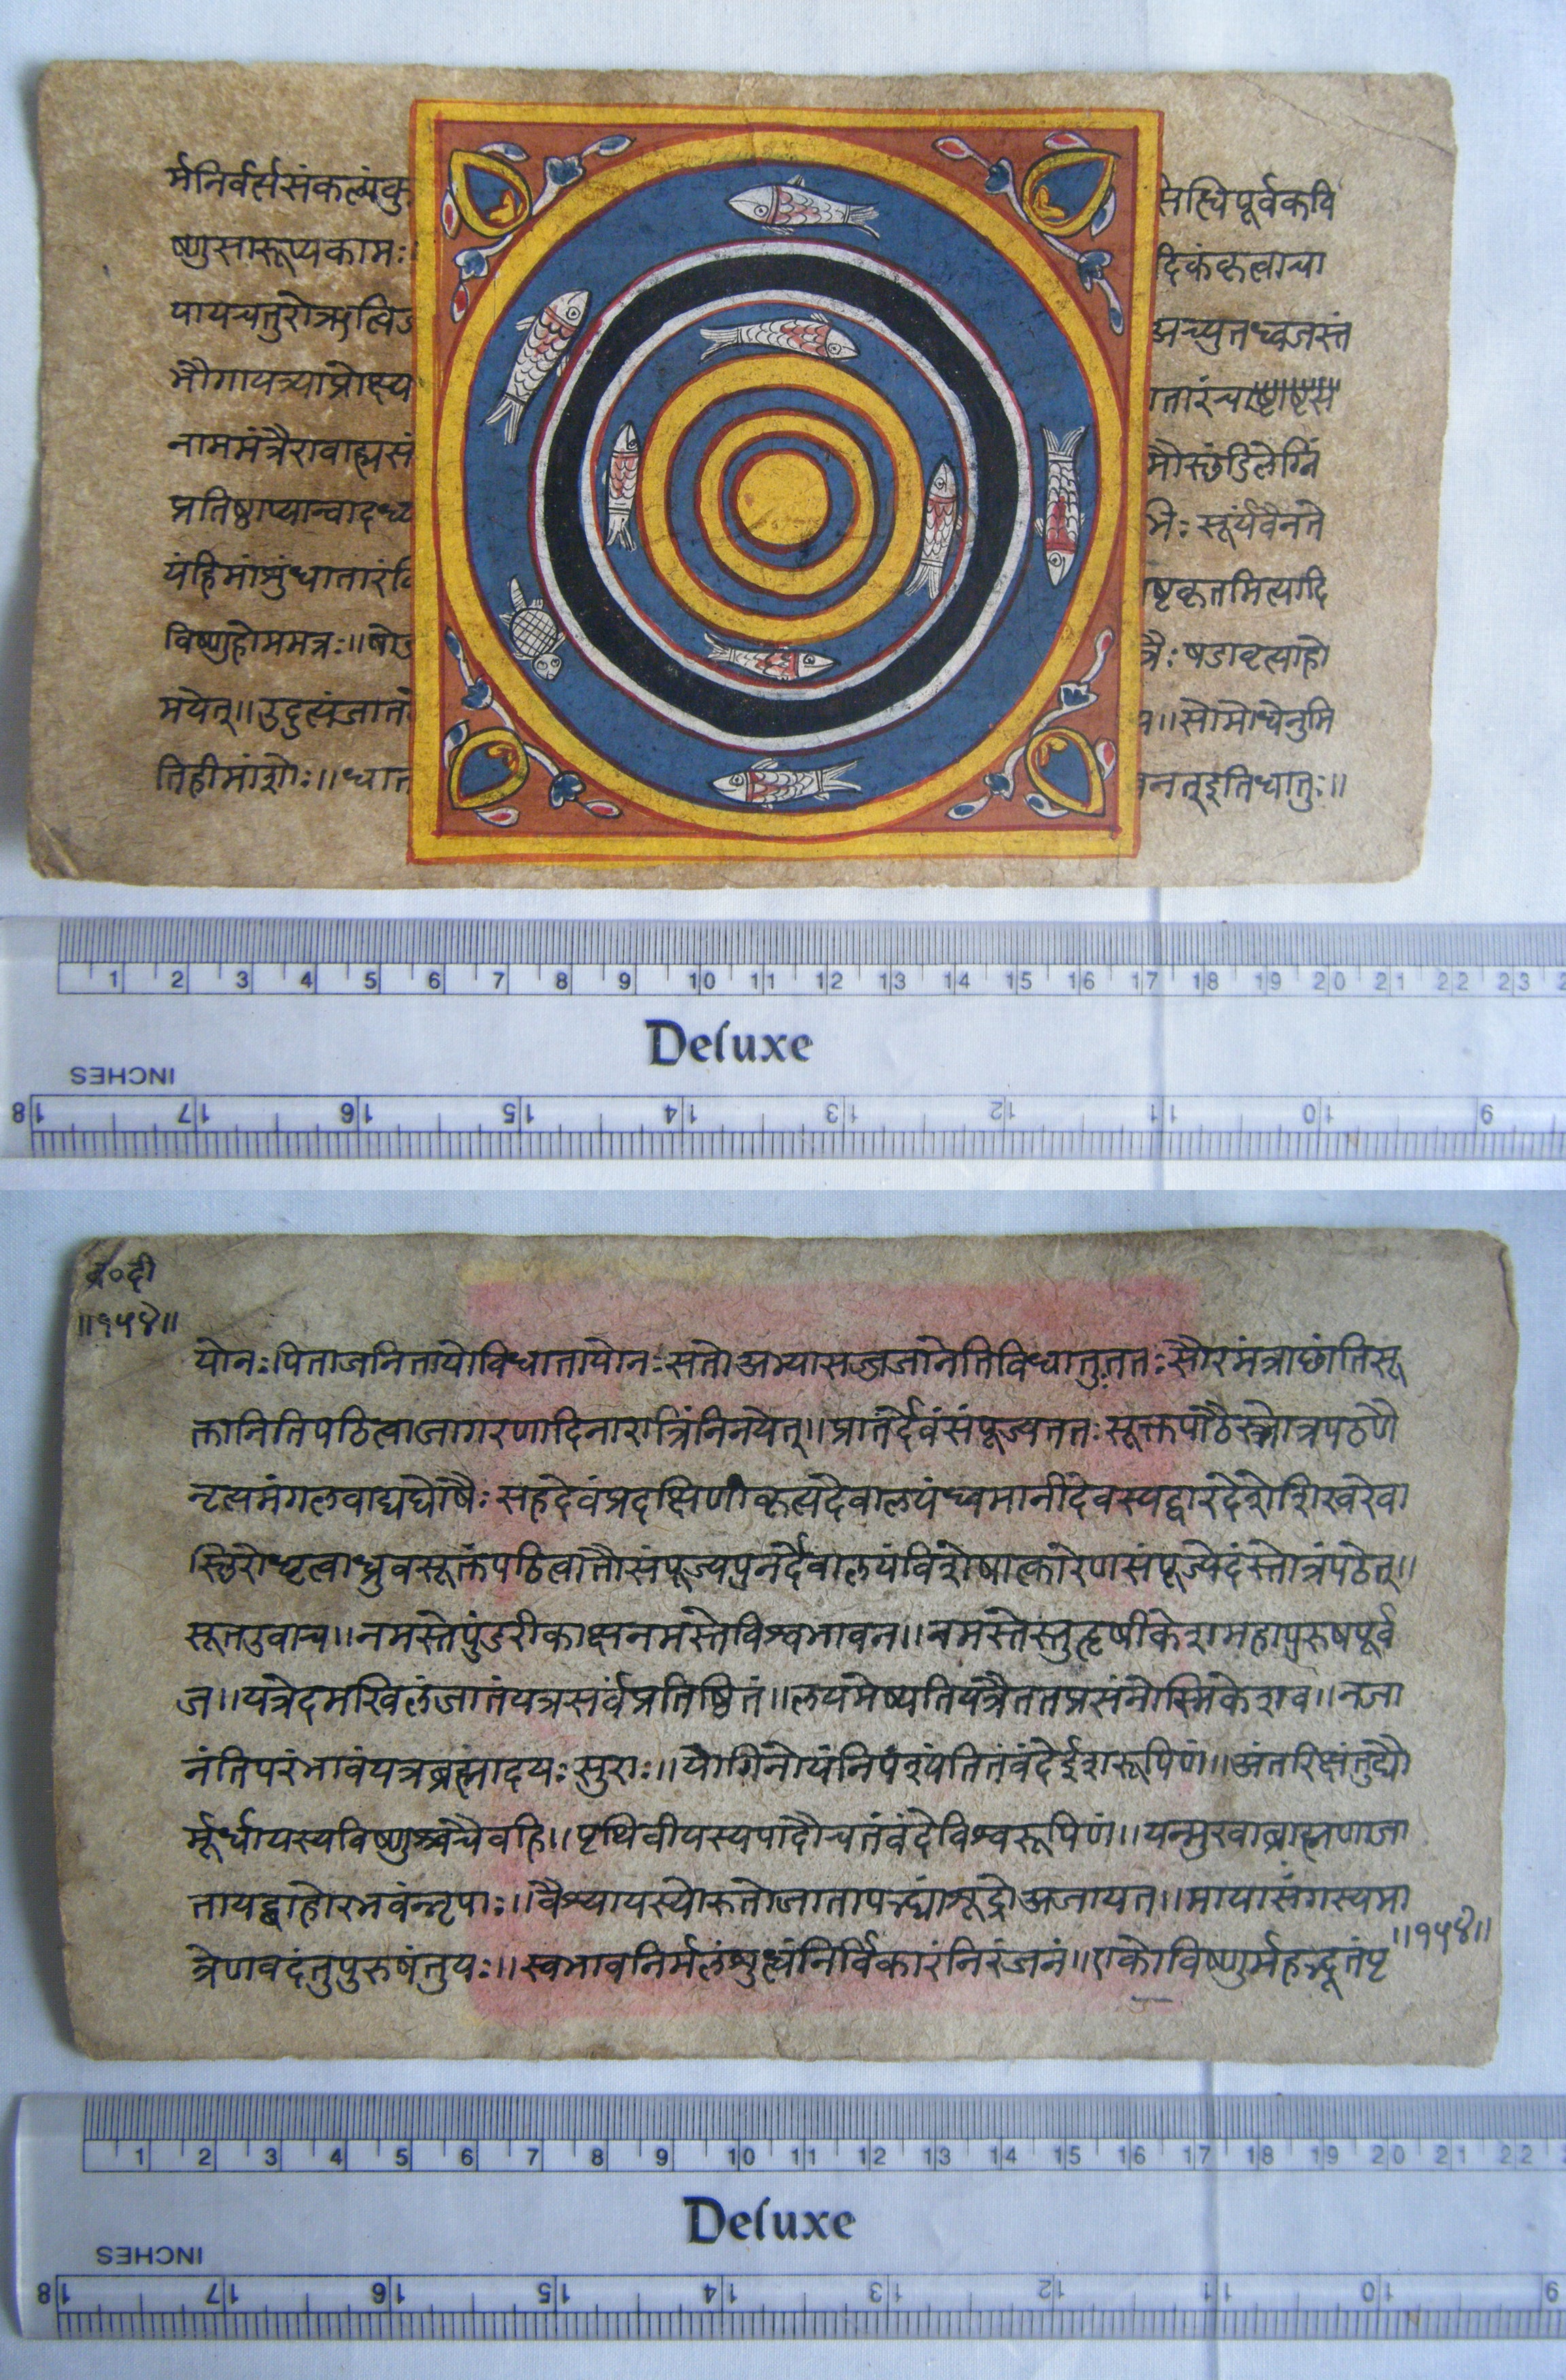 र्मनिर्वर्त्यसंकल्पंकु
सत्धिपूर्वकवि
ष्णुसारूप्यकामः
दिकंकृत्वाचा
पायचतुरोऋत्विज
अच्युतध्वजस्तं
मौगायत्र्याप्रोक्ष्य
नाममंत्रैरावाह्यसं
मौस्छंडिलेग्निं
प्रतिष्ठाप्यान्वादध्य
मिः सूर्यंवैनते
यंहिमांशुंधातारंवि
ष्टकृतमित्यादि
विष्णुहोममत्रः॥षोड
त्रैः षडावृत्याहो
मयेत्॥उदुत्यंजातवे
॥सोमोधेनुमि
तिहीमांशोः॥धात
नतुइतिधातुः॥
1 2 3 4 5 6 7 8 9 10 11 12 13 14 15 16 17 18 19 20 21 22 23
Deluxe
INCHES
18 17 16 15 14 13 12 11 10 9
व्र०दी
॥१५४॥
योनः पिताजनितायोविधातायोनः सतोअभ्यासज्जजानेतिविधातुः ततः सौरमंत्राछांतिसू
क्तानितिपठित्वाजागरणादिनारात्रिंनिनयेत्॥प्रातर्देवंसंपूज्यततः सूक्तपाठैस्तोत्रपठणै
नृत्यमंगलवाद्यघोषैः सहदेवंप्रदक्षिणीकृत्यदेवालयंध्वमानींदेवस्यद्वारदेशेशिखरेवा
स्छिरोधृत्वाध्रुवसूक्तंपठित्वातौसंपूज्यपुनर्देवालयंविशेषात्कारेणसंपूज्येदंस्तोत्रंपठेत्॥
सूतउवाच॥नमस्तेपुंडरीकाक्षनमस्तेविश्वभावन॥नमस्तेस्तुहृषीकेशमहापुरुषपूर्व
ज॥यत्रेदमखिलंजातंयत्रसर्वंप्रतिष्ठितं॥लयमेष्यतियत्रैततप्रसंनोस्मिकेशव॥नजा
नंतिपरंभावंयत्रब्रह्मादयः सुराः॥योगिनोयंनिपंश्यंतितंवंदेईशरूपिणं॥अंतरिक्षंतुद्यौ
र्मूर्धायस्यविष्णुश्चचैवहि॥पृथिवीयस्यपादौचतंवंदेविश्वरूपिणं॥यन्मुखाब्राह्मणाजा
तायद्बाहोरभवंनृपाः॥वैश्यायस्योरुतोजातापद्भ्यांशूद्रोअजायत॥मायासंगस्यमा
त्रेणवदंतुपुरुषंतुयः॥स्वभावनिर्मलंशुत्धंनिर्विकारंनिरंजनं॥एकोविष्णुर्महद्भूतंपृ
॥१५४॥
1 2 3 4 5 6 7 8 9 10 11 12 13 14 15 16 17 18 19 20 21 22
Deluxe
INCHES
18 17 16 15 14 13 12 11 10 9